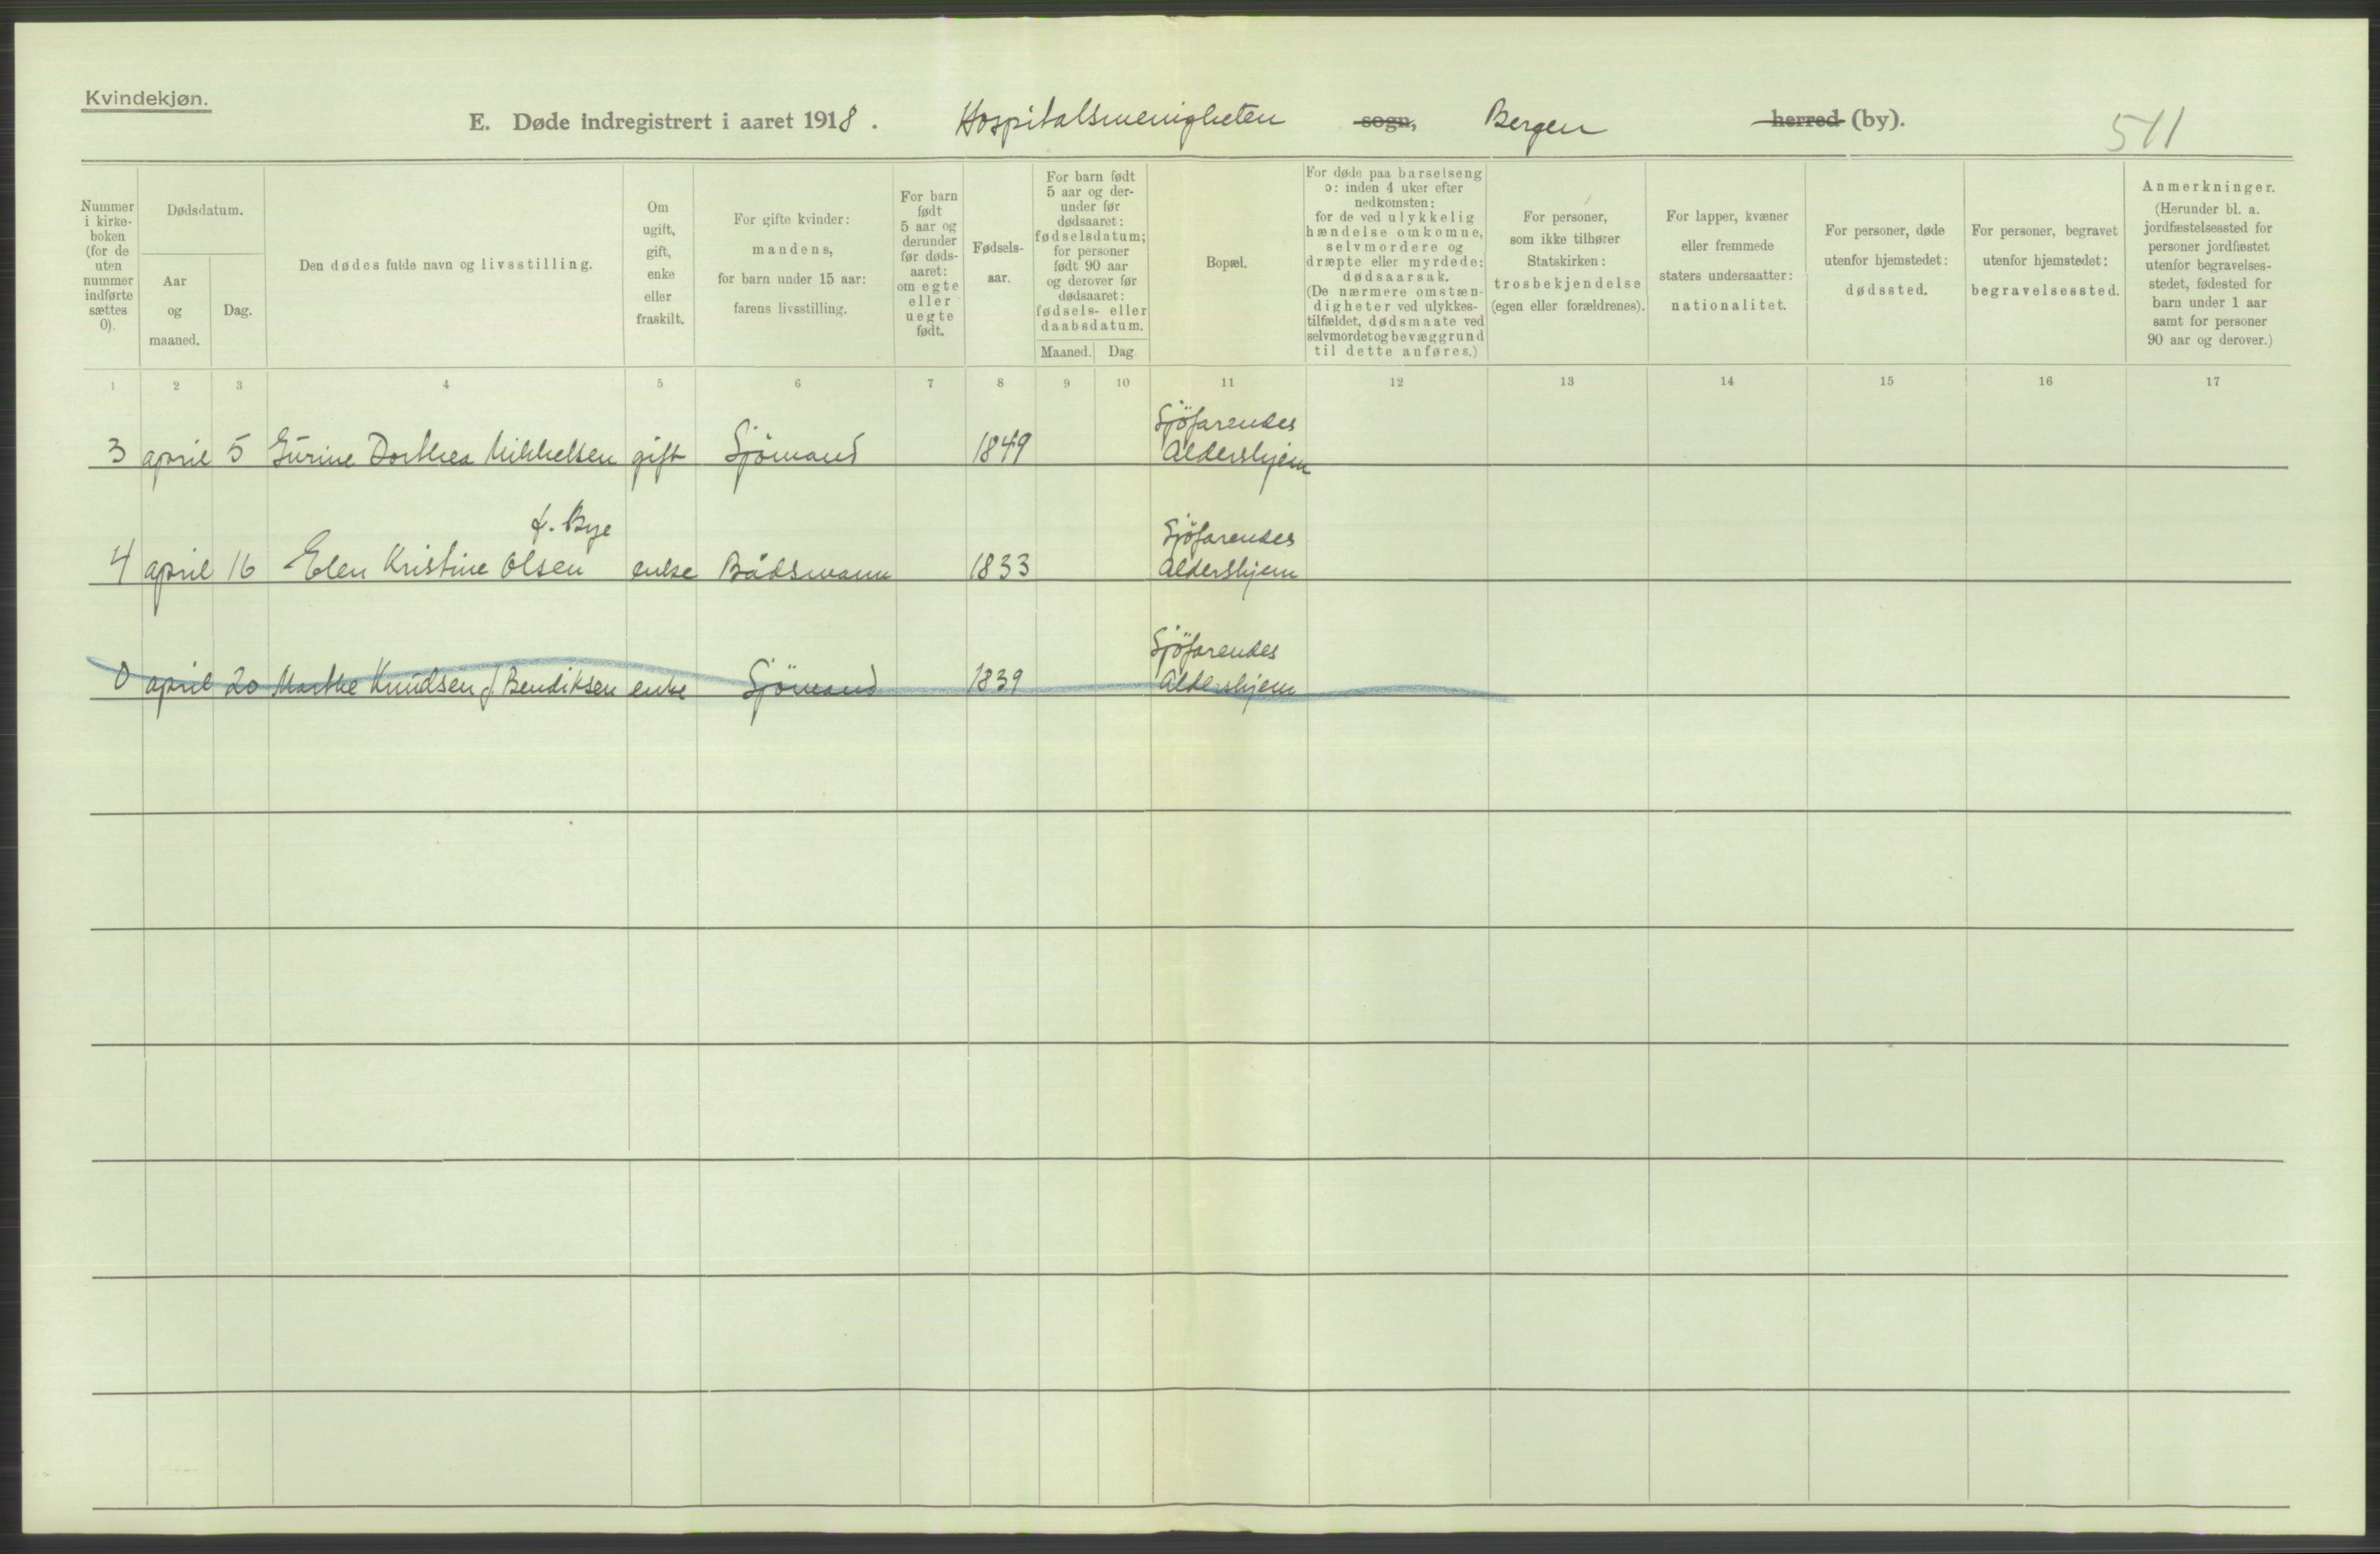 Kvindekjøn.
E. Døde indregistrert i aaret 1918. Hospitalsmenigheten sogn, Bergen herred (by). 511
Nummer i kirke-boken (for de uten nummer indførte sættes 0).
Dødsdatum.
Aar og maaned.
Dag.
Den dødes fulde navn og livsstilling.
Om ugift, gift, enke eller fraskilt.
For gifte kvinder: mandens, for barn under 15 aar: farens livsstilling.
For barn født 5 aar og derunder før døds-aaret: om egte eller uegte født.
Fødsels-aar.
For barn født 5 aar og der-under før dødsaaret: fødselsdatum; for personer født 90 aar og derover før dødsaaret: fødsels- eller daabsdatum.
Maaned. Dag
Bopæl.
For døde paa barselseng ɔ: inden 4 uker efter nedkomsten: for de ved ulykkelig hændelse omkomne, selvmordere og dræpte eller myrdede: dødsaarsak. (De nærmere omstæn-digheter ved ulykkes-tilfældet, dødsmaate ved selvmordet og bevæggrund til dette anføres.)
For personer, som ikke tilhører Statskirken: trosbekjendelse (egen eller forældrenes).
For lapper, kvæner eller fremmede staters undersaatter: nationalitet.
For personer, døde utenfor hjemstedet: dødssted.
For personer, begravet utenfor hjemstedet: begravelsessted.
Anmerkninger. (Herunder bl. a. jordfæstelsessted for personer jordfæstet utenfor begravelses-stedet, fødested for barn under 1 aar samt for personer 90 aar og derover.)
1 2 3 4 5 6 7 8 9 10 11 12 13 14 15 16 17
Sjöfarendes
3 april 5 Gurine Dorthea Mikkelsen gift Sjömand 1849 Aldershjem
f. Bye Sjöfarendes
4 april 16 Elen Kristine Olsen enke Bådsmann 1833 Aldershjem
Sjöfarendes
0 april 20 Marthe Knudsen f Bendiksen enke Sjömand 1839 Aldershjem